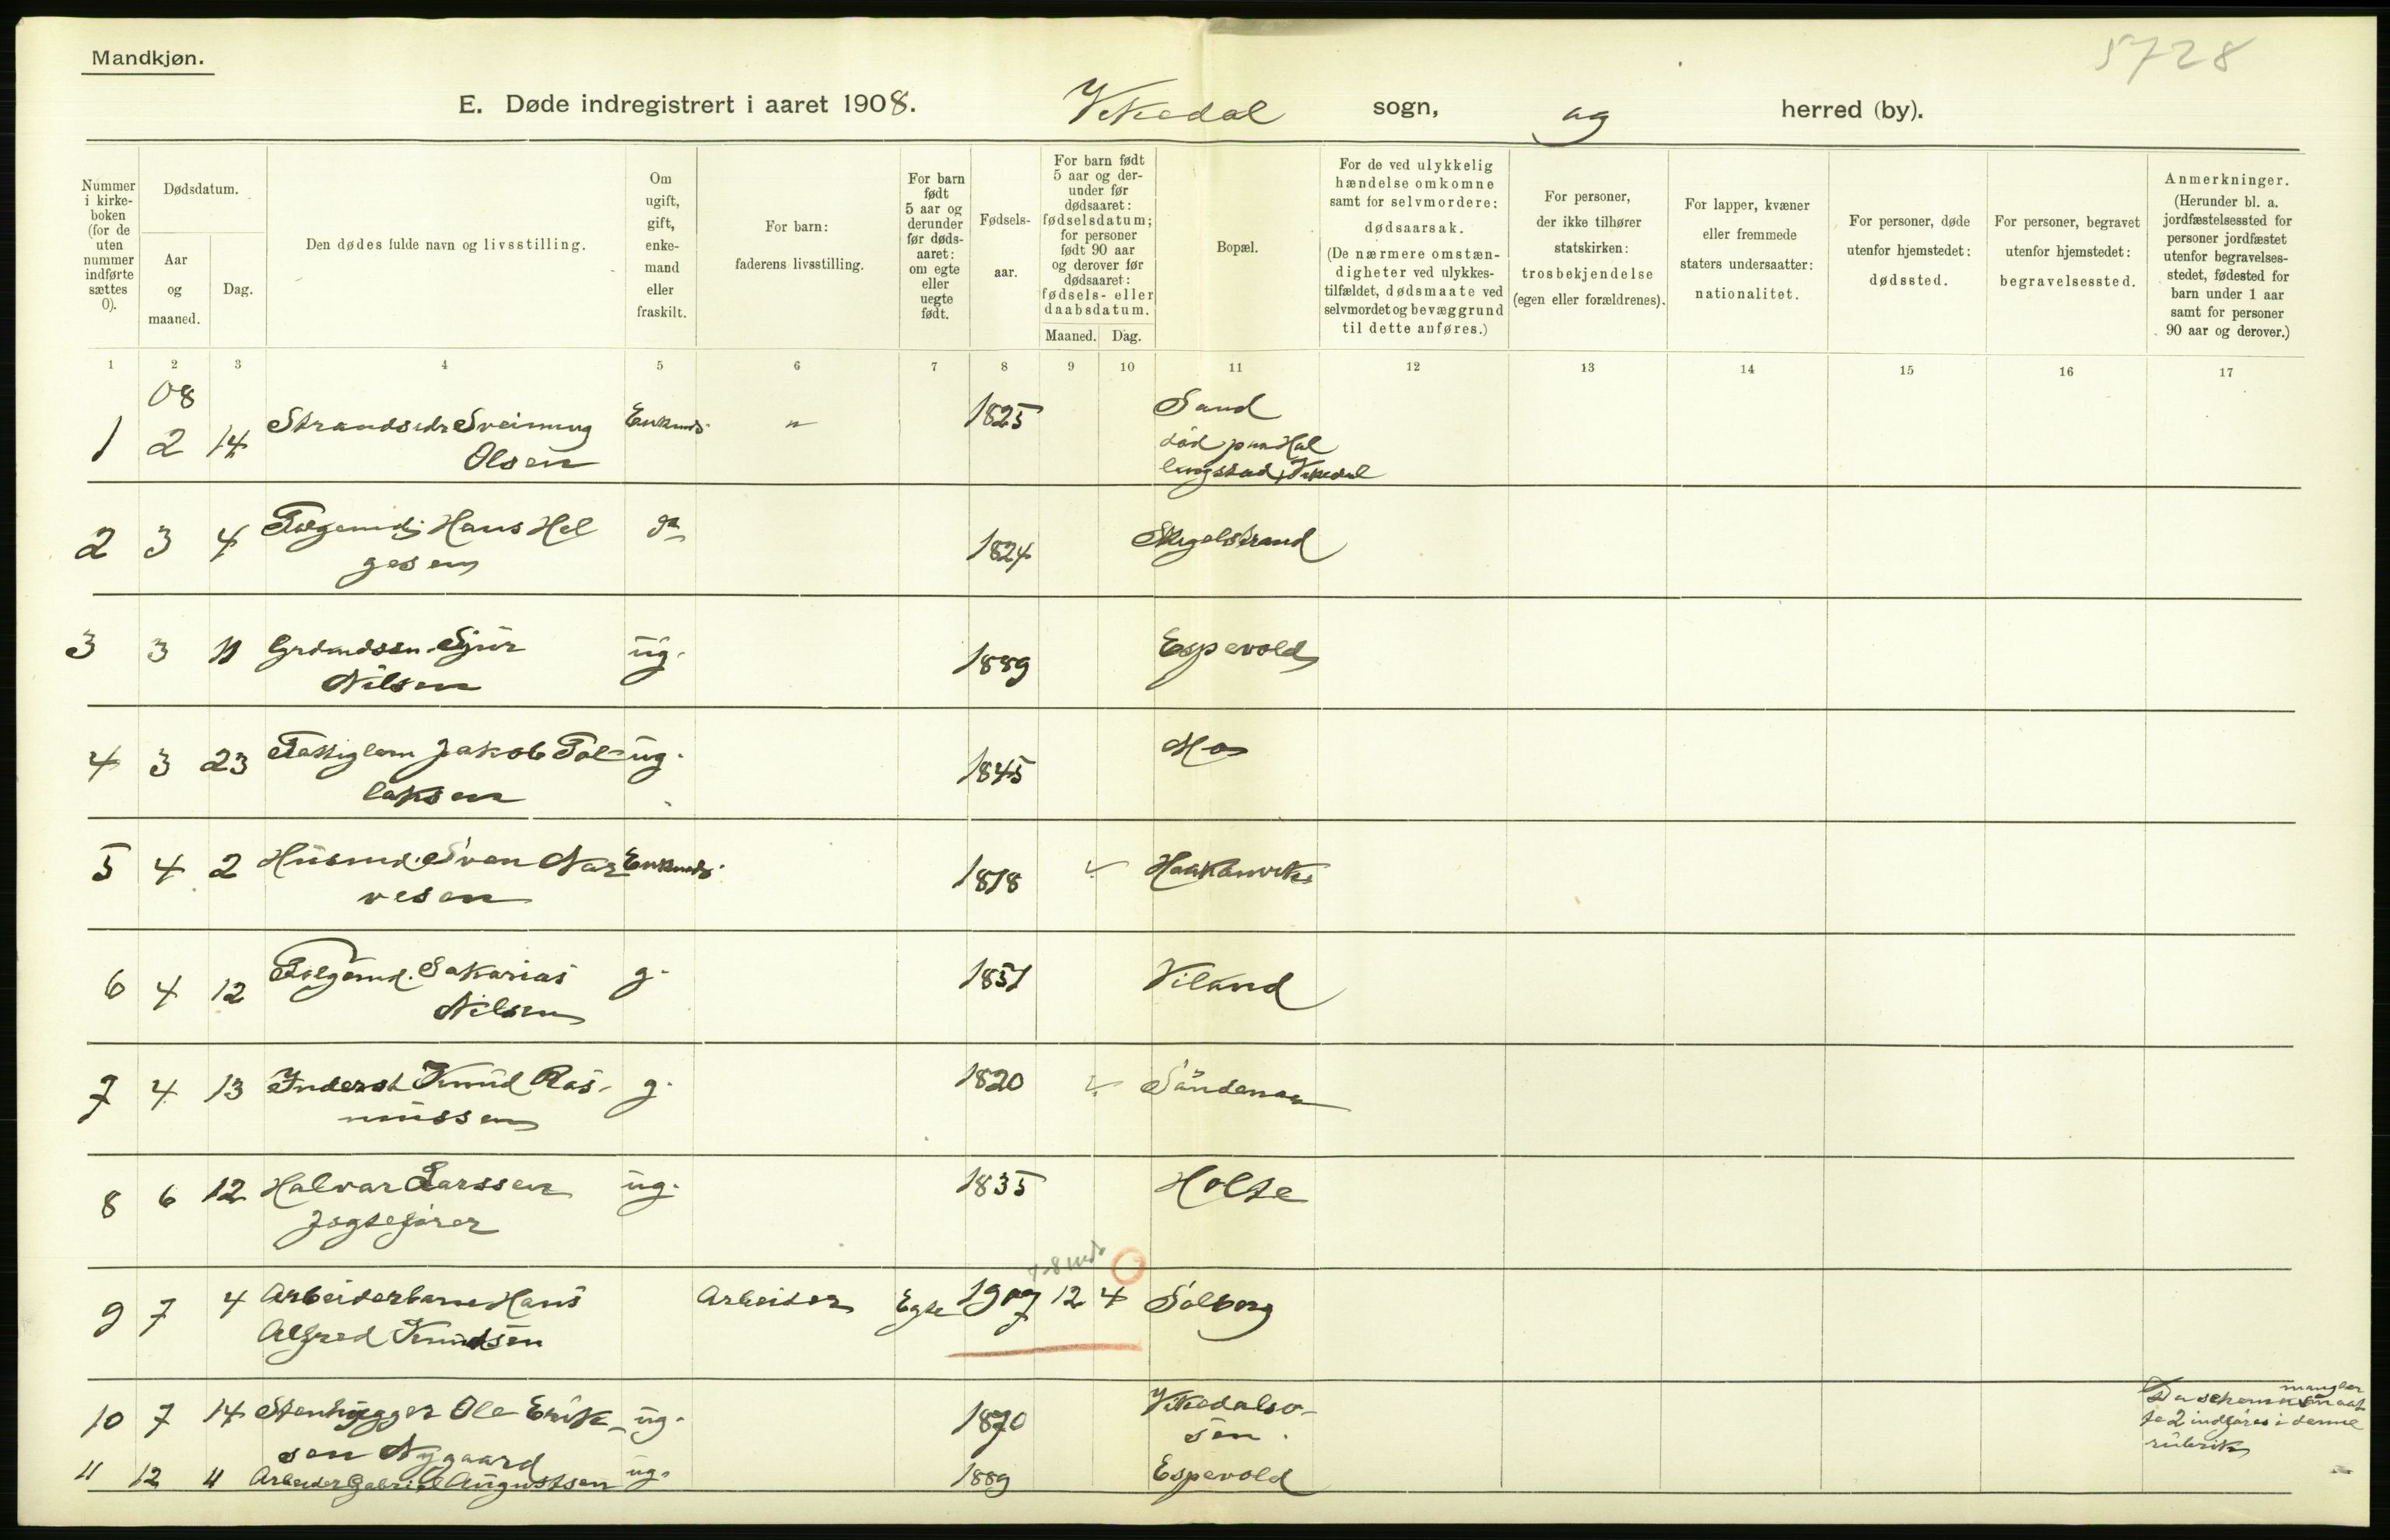 Mandkjøn.
5728
E. Døde indregistrert i aaret 1908. Vikedal sogn, og herred (by).
Nummer i kirkeboken (for de uten nummer indførte sættes 0).
Dødsdatum.
Aar og maaned.
Dag.
Den dødes fulde navn og livsstilling.
Om ugift, gift, enkemand eller fraskilt.
For barn: faderens livsstilling.
For barn født 5 aar og derunder før dødsaaret: om egte eller uegte født.
Fødselsaar.
For barn født 5 aar og derunder før dødsaaret: fødselsdatum; for personer født 90 aar og derover før dødsaaret: fødsels- eller daabsdatum.
Maaned. Dag.
Bopæl.
For de ved ulykkelig hændelse omkomne samt for selvmordere: dødsaarsak. (De nærmere omstændigheter ved ulykkestilfældet, dødsmaate ved selvmordet og bevæggrund til dette anføres.)
For personer, der ikke tilhører statskirken: trosbekjendelse (egen eller forældrenes).
For lapper, kvæner eller fremmede staters undersaatter: nationalitet.
For personer, døde utenfor hjemstedet: dødssted.
For personer, begravet utenfor hjemstedet: begravelsessted.
Anmerkninger. (Herunder bl. a. jordfæstelsessted for personer jordfæstet utenfor begravelsesstedet, fødested for barn under 1 aar samt for personer 90 aar og derover.)
1 2 3 4 5 6 7 8 9 10 11 12 13 14 15 16 17
08
1 2 14 Strandsidr Sveinung Enkmd. " 1825 Sand
Olsen død paa Hal
lingstad, Vikedal
2 3 4 Hans Hel 1824
gesen
3 3 11 Grdmdssn. Sjur ug. 1889 Espevold
Nilsen
4 3 23 Fattiglem Jakob Tol- ug. 1845 Mo
laksen
5 4 2 Husmd. Sven Nar Enkmd. 1818 Haakonvik
vesen
6 4 12 Følgemd. Sakarias g. 1851 Viland
Nilsen
7 4 13 Inderst Knud Ras- g. 1820 Søndenaa
mussen
8 6 12 Halvar Larssen ug. 1835 Holte
Jagtefører
7-8 md
9 7 4 Arbeiderbarn Hans Arbeider Egte 1907 12 4 Solberg
Alfred Knudsen
10 7 14 Stenhugger Ole Erik- ug. 1870 Vikedalso-
sen Nygaard sen.
Da schema mangler
2 indføres i denne
rubrik
11 12 11 Arbeider Gabriel Augustsen ug. 1889 Espevold